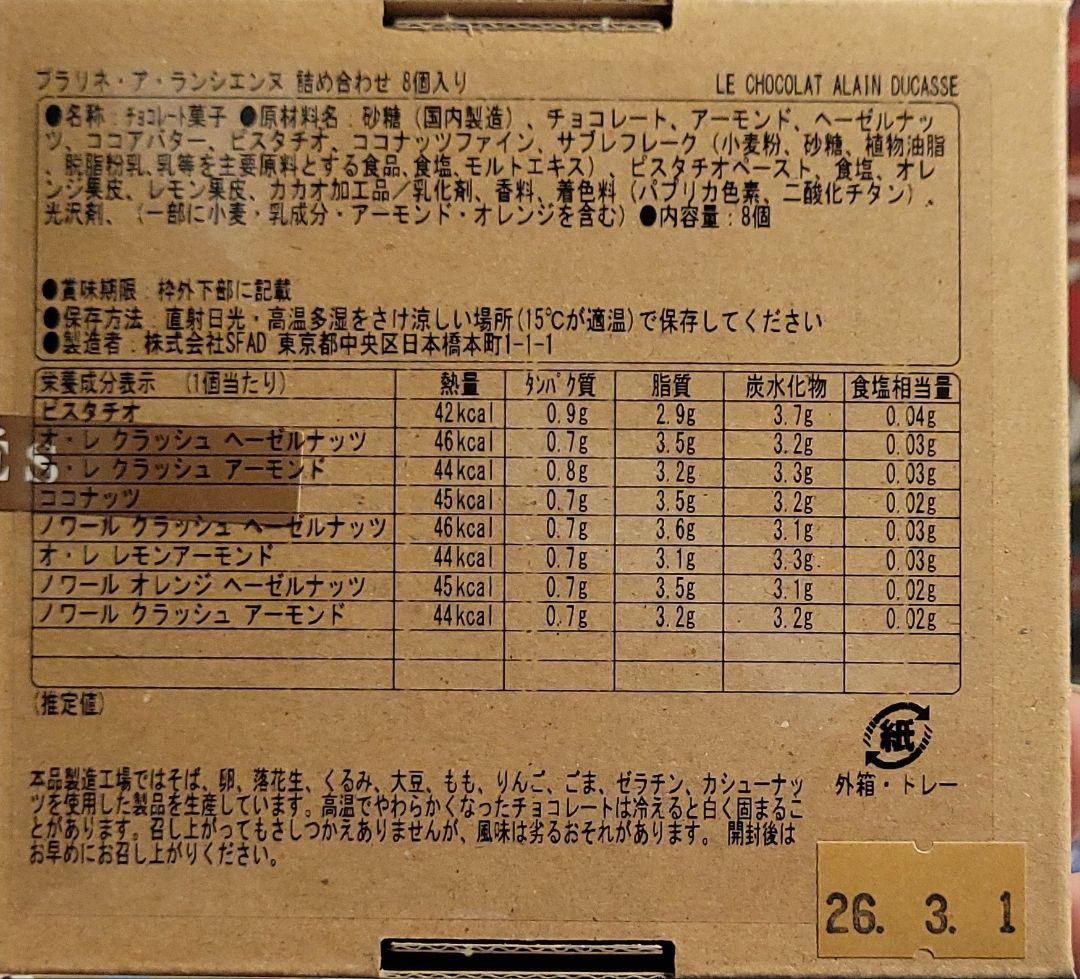 プラリネ・ア・ランシエンヌ 詰め合わせ 8個入り
LE CHOCOLAT ALAIN DUCASSE
●名称：チョコレート菓子 ●原材料名：砂糖（国内製造）、チョコレート、アーモンド、ヘーゼルナッ
ツ、ココアバター、ピスタチオ、ココナッツファイン、サブレフレーク（小麦粉、砂糖、植物油脂
、脱脂粉乳、乳等を主要原料とする食品、食塩、モルトエキス）、ピスタチオペースト、食塩、オレ
ンジ果皮、レモン果皮、カカオ加工品／乳化剤、香料、着色料（パプリカ色素、二酸化チタン）、
光沢剤、（一部に小麦・乳成分・アーモンド・オレンジを含む）●内容量：8個
●賞味期限：枠外下部に記載
●保存方法：直射日光・高温多湿をさけ涼しい場所(15℃が適温)で保存してください
●製造者：株式会社SFAD 東京都中央区日本橋本町1-1-1
栄養成分表示 （1個当たり） 熱量 タンパク質 脂質 炭水化物 食塩相当量
ピスタチオ 42kcal 0.9g 2.9g 3.7g 0.04g
オ・レ クラッシュ ヘーゼルナッツ 46kcal 0.7g 3.5g 3.2g 0.03g
オ・レ クラッシュ アーモンド 44kcal 0.8g 3.2g 3.3g 0.03g
ココナッツ 45kcal 0.7g 3.5g 3.2g 0.02g
ノワール クラッシュ ヘーゼルナッツ 46kcal 0.7g 3.6g 3.1g 0.03g
オ・レ レモンアーモンド 44kcal 0.7g 3.1g 3.3g 0.03g
ノワール オレンジ ヘーゼルナッツ 45kcal 0.7g 3.5g 3.1g 0.02g
ノワール クラッシュ アーモンド 44kcal 0.7g 3.2g 3.2g 0.02g
(推定値)
紙
外箱・トレー
本品製造工場ではそば、卵、落花生、くるみ、大豆、もも、りんご、ごま、ゼラチン、カシューナッ
ツを使用した製品を生産しています。高温でやわらかくなったチョコレートは冷えると白く固まるこ
とがあります。召し上がってもさしつかえありませんが、風味は劣るおそれがあります。 開封後は
お早めにお召し上がりください。
26. 3. 1